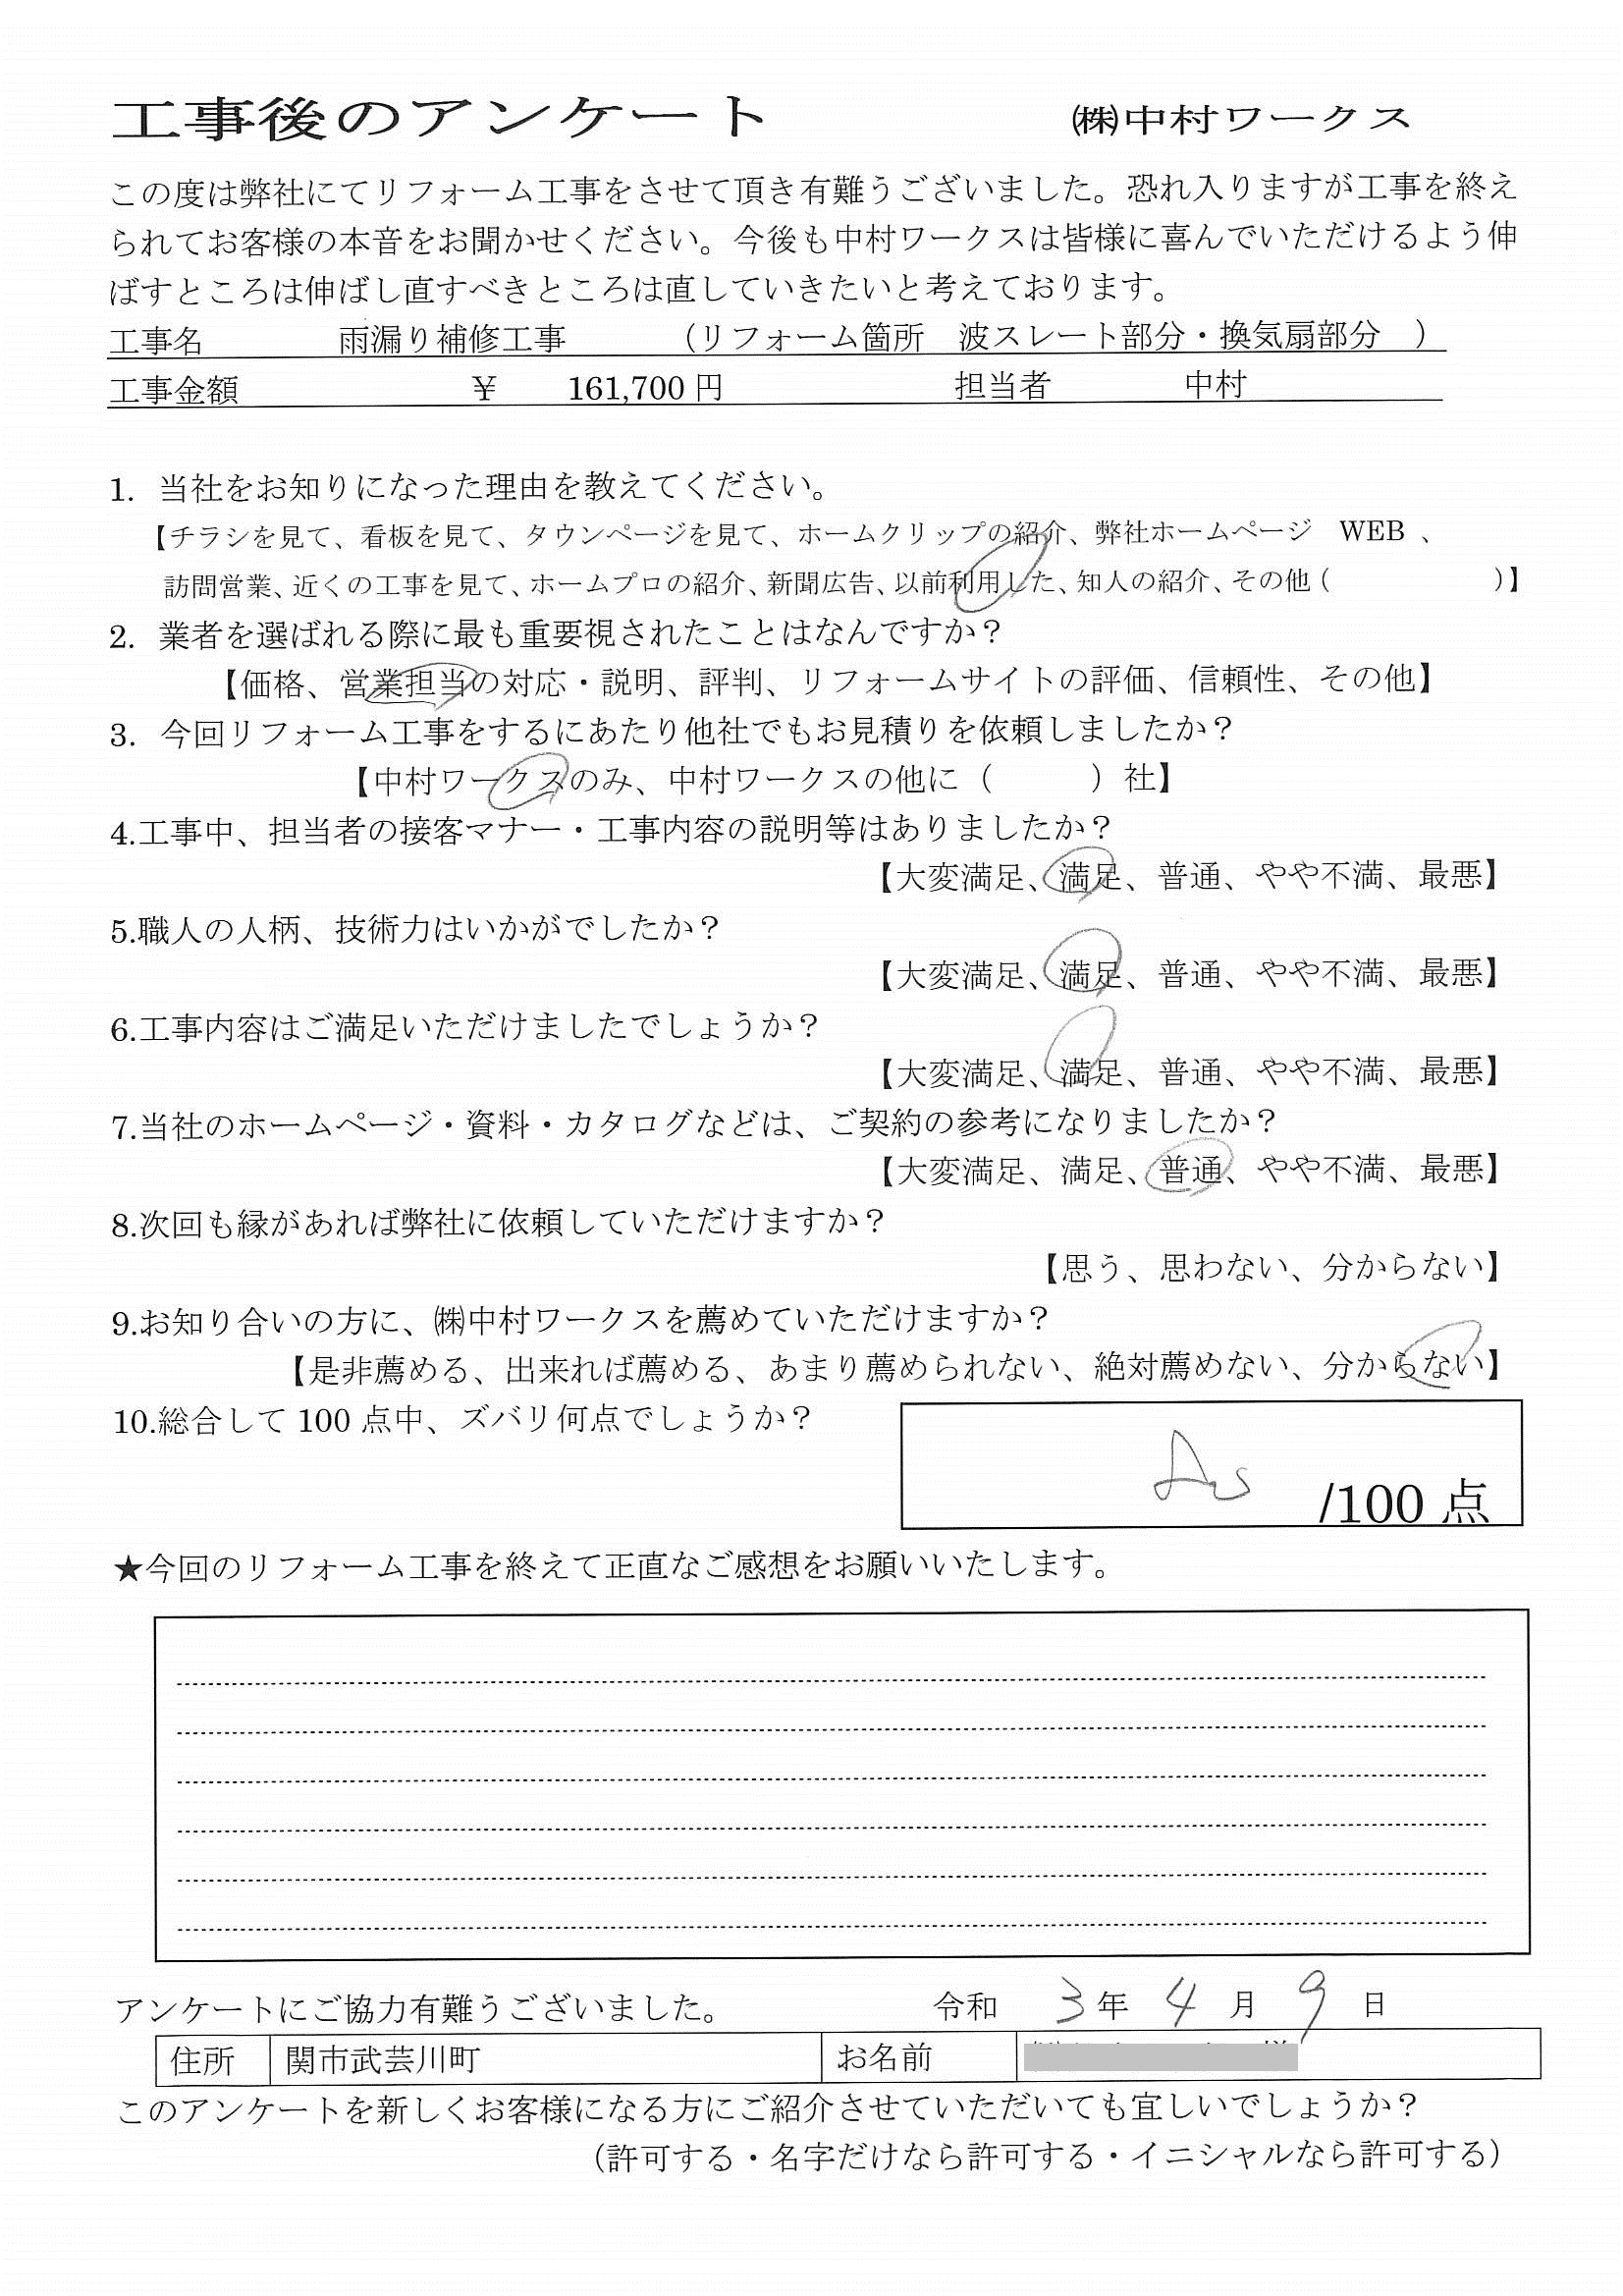 工事後のアンケート　㈱中村ワークス
この度は弊社にてリフォーム工事をさせて頂き有難うございました。恐れ入りますが工事を終え
られてお客様の本音をお聞かせください。今後も中村ワークスは皆様に喜んでいただけるよう伸
ばすところは伸ばし直すべきところは直していきたいと考えております。
工事名　雨漏り補修工事　（リフォーム箇所　波スレート部分・換気扇部分　）
工事金額　￥　161,700 円　担当者　中村
1. 当社をお知りになった理由を教えてください。
【チラシを見て、看板を見て、タウンページを見て、ホームクリップの紹介、弊社ホームページ　WEB 、
訪問営業、近くの工事を見て、ホームプロの紹介、新聞広告、以前利用した、知人の紹介、その他（　　　）】
2. 業者を選ばれる際に最も重要視されたことはなんですか？
【価格、営業担当の対応・説明、評判、リフォームサイトの評価、信頼性、その他】
3. 今回リフォーム工事をするにあたり他社でもお見積りを依頼しましたか？
【中村ワークスのみ、中村ワークスの他に（　　　）社】
4.工事中、担当者の接客マナー・工事内容の説明等はありましたか？
【大変満足、満足、普通、やや不満、最悪】
5.職人の人柄、技術力はいかがでしたか？
【大変満足、満足、普通、やや不満、最悪】
6.工事内容はご満足いただけましたでしょうか？
【大変満足、満足、普通、やや不満、最悪】
7.当社のホームページ・資料・カタログなどは、ご契約の参考になりましたか？
【大変満足、満足、普通、やや不満、最悪】
8.次回も縁があれば弊社に依頼していただけますか？
【思う、思わない、分からない】
9.お知り合いの方に、㈱中村ワークスを薦めていただけますか？
【是非薦める、出来れば薦める、あまり薦められない、絶対薦めない、分からない】
10.総合して 100 点中、ズバリ何点でしょうか？
/100 点
★今回のリフォーム工事を終えて正直なご感想をお願いいたします。
アンケートにご協力有難うございました。　令和　3 年　4 月　9 日
住所　関市武芸川町　お名前
このアンケートを新しくお客様になる方にご紹介させていただいても宜しいでしょうか？
（許可する・名字だけなら許可する・イニシャルなら許可する）